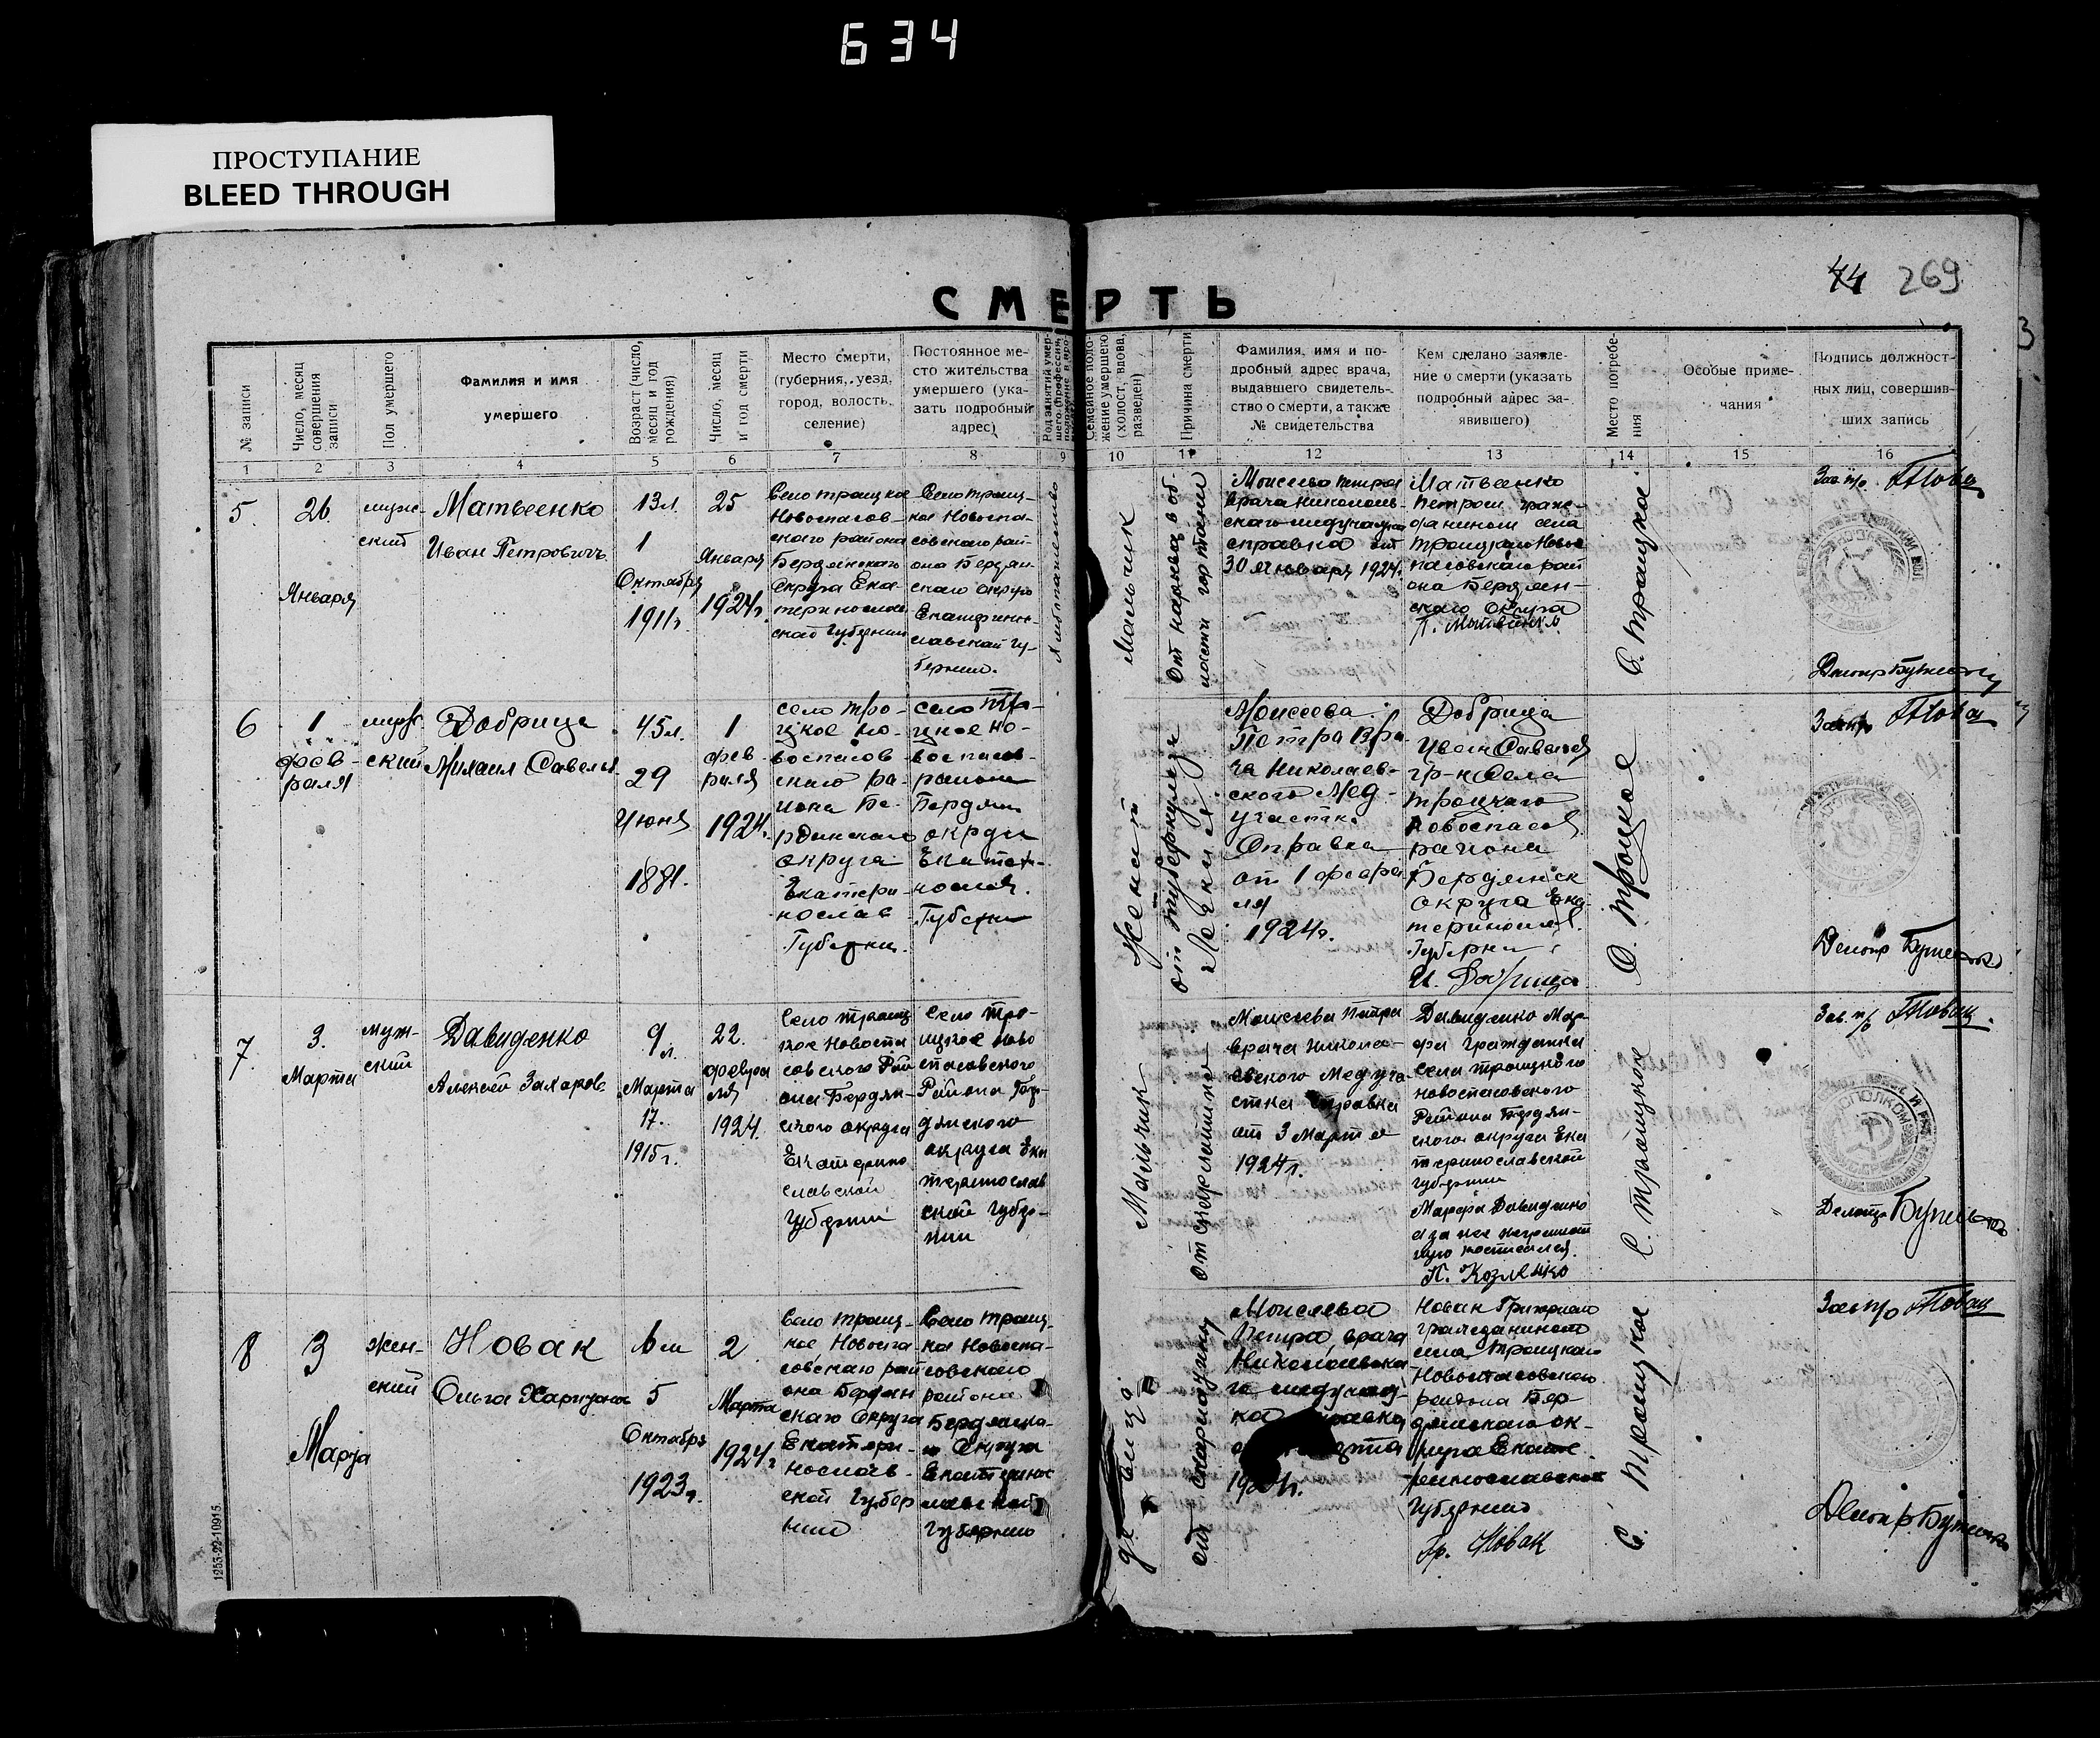 634
ПРОСТУПАНИЕ
BLEED THROUGH
44 269
3
СМЕРТЬ
№ записи
Число, месяц
совершения
записи
Пол умершего
Фамилия и имя
умершего
Возраст (число,
месяц и год
рождения)
Число, месяц
и год смерти
Место смерти,
(губерния, уезд,
город, волость,
селение)
Постоянное ме-
сто жительства
умершего (ука-
зать подробный
адрес)
Род занятий умер-
шего (профессия,
Семейное поло-
жение умершего
(холост, вдова,
разведен)
Причина смерти
Фамилия, имя и по-
дробный адрес врача,
выдавшего свидетель-
ство о смерти, а также
№ свидетельства
Кем сделано заявле-
ние о смерти (указать
подробный адрес за-
явившего)
Место погребе-
ния
Особые приме-
чания
Подпись должност-
ных лиц, совершив-
ших запись
1 2 3 4 5 6 7 8 9 10 11 12 13 14 15 16
5.
26.
Января
муж-
ский
Матвеенко
Иван Петровичъ
13 л.
1
Октября
1911 г.
25
Января
1924 г.
Село Троицкое
Новоспасов-
ского района
Бердянского
Округа Ека-
теринослав-
ской Губернии
Село Троиц-
кое Новоспа-
совского рай-
она Бердян-
ского округа
Екатерино-
славской гу-
бернии.
Мальчик
От нарыва в об
ласти гортани
Моисеева Петра
врача Николаев-
ского медучастка
справка от
30 Января 1924 г.
Матвеенко
Петром граж-
данином села
Троицкаго Новос
пасовскаго рай
она Бердян-
ского Округа
П. Матвеенко
С. Троицкое
Зав. п/о
6
1
фев-
раля
муж-
ский
Добрица
Михаил Савельев
45 л.
29
Июня
1881.
1
фев
раля
1924 г.
село Тро-
ицкое но-
воспасов
ского ра-
иона Бе-
рдянского
округа
Екатери-
нослав
Губерни.
село Тро-
ицкое но-
воспасов-
района
Бердян
округа
Екатери-
нослав.
Губерни
Женат
от туберкулеза
Легких
Моисеева
Петра Вра-
ча Николаев-
ского Мед-
участка
Справка
от 1 февра
ля
1924 г.
Добрица
Иван Савелев
гр-н Села
Троицкаго
Новоспасов.
района
Бердянск
округа Ека-
теринослав.
Губерни
И. Добрица
С. Троицкое
7.
3.
Марта
муж-
ский
Давиденко
Алексей Захаров
9 л.
Марта
17.
1915 г.
22.
февра
ля
1924.
Село Троиц
кое Новоспа
совского Рай
она Бердян-
ского округа
Екатерино
славской
Губернии
Село Тро-
ицкое ново
спасовского
Района Бер
дянского
округа Ека
теринослав
ской Губер-
нии
Мальчик
от скарлатины
Моисеева Петра
врача Никола-
евского Медуча-
стка справка
от 3 Марта
1924 г.
Давиденко Мар-
фа Гражданка
села Троицкого
новоспасовского
Района Бердян-
ского округа Ека
теринославской
губернии
Марфа Давиденко
а за нее неграмот
ную расписался.
П. Козленко
С. Троицкое
Зав. п/о
ИСПОЛКОМ
8
3
Марта
жен-
ский
Новак
Ольга
6 м
5
Октября
1923 г.
2
Марта
1924 г.
Село Троиц-
кое Новоспа
совскаго рай
она Бердян
скаго Округа
Екатери-
нослав-
ской Губер
нии
Село Троиц-
кое Новоспа-
совского
района
Бердянско-
го Округа
Екатеринос
лавской
Губернии
девица
от скарлатины
Моисеева
Петра, врача
Николаевска-
го медучаст-
ка
1924 г.
Новак Григорием
гражданином
села Троицкаго
Новоспасовского
района Бер-
дянского ок-
руга Екате-
ринославской
Губернии
Гр. Новак
С. Троицкое
Зав п/о
1253-22-10915.